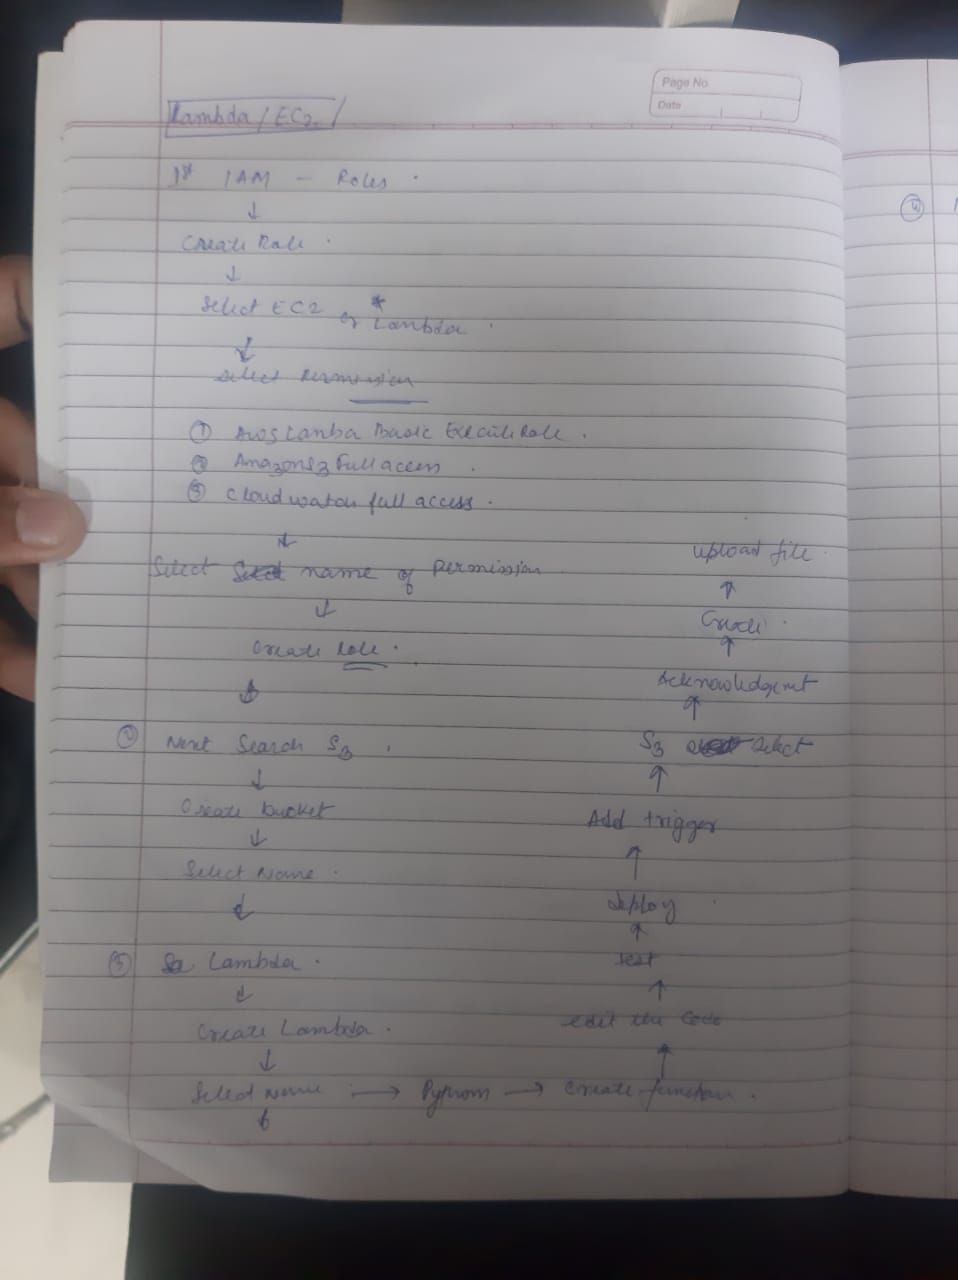 Page No
Date
Lambda / EC2
1st IAM - Roles .
↓
Create Role .
↓
Select EC2 or * Lambda .
↓
Select Permission
① Aws Lamba Basic Execute Role .
② AmazonS3 Full access .
③ cloud watch full access .
↓
Select name of permission
↓
Create Role .
↓
② Next Search S3 .
↓
Create bucket
↓
Select Name .
↓
③ Lambda .
↓
Create Lambda .
↓
Select Name → → Create function .
↓
↑
edit the Code
↑
test
↑
deploy .
↑
Add trigger
↑
S3 select
↑
Acknowledgemt
↑
↑
upload file .
④